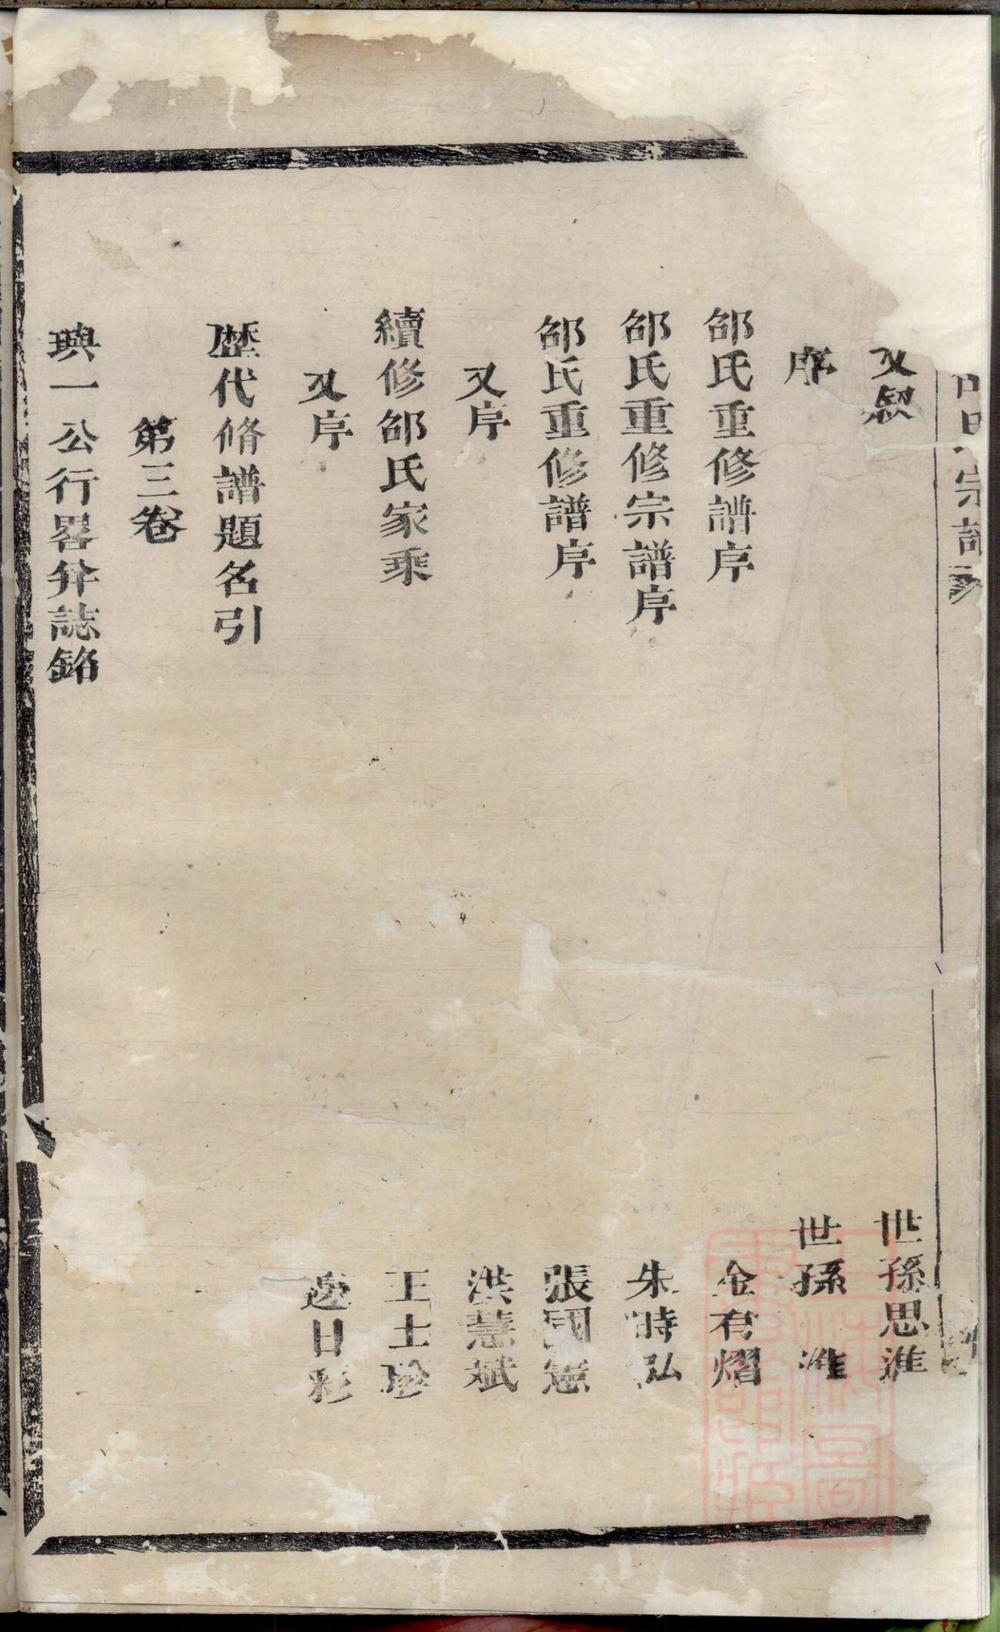 宗譜
又叙 世孫思進
序 世孫 濰
邰氏重修譜序 金有熠
邰氏重修宗譜序 朱時弘
邰氏重修譜序 張國憲
又序 洪慧斌
續修邰氏家乘 王士珍
又序 邊日彩
歷代脩譜題名引
第三卷
琠一公行畧并誌銘